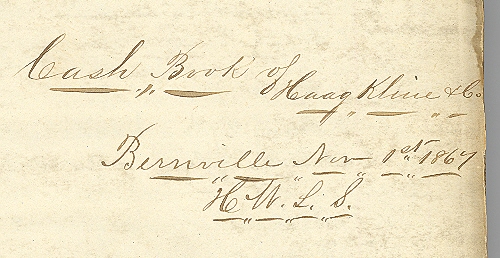 Cash Book of Haag Kline & Co
Bernville Nov 1st 1867
H. W. L. S.